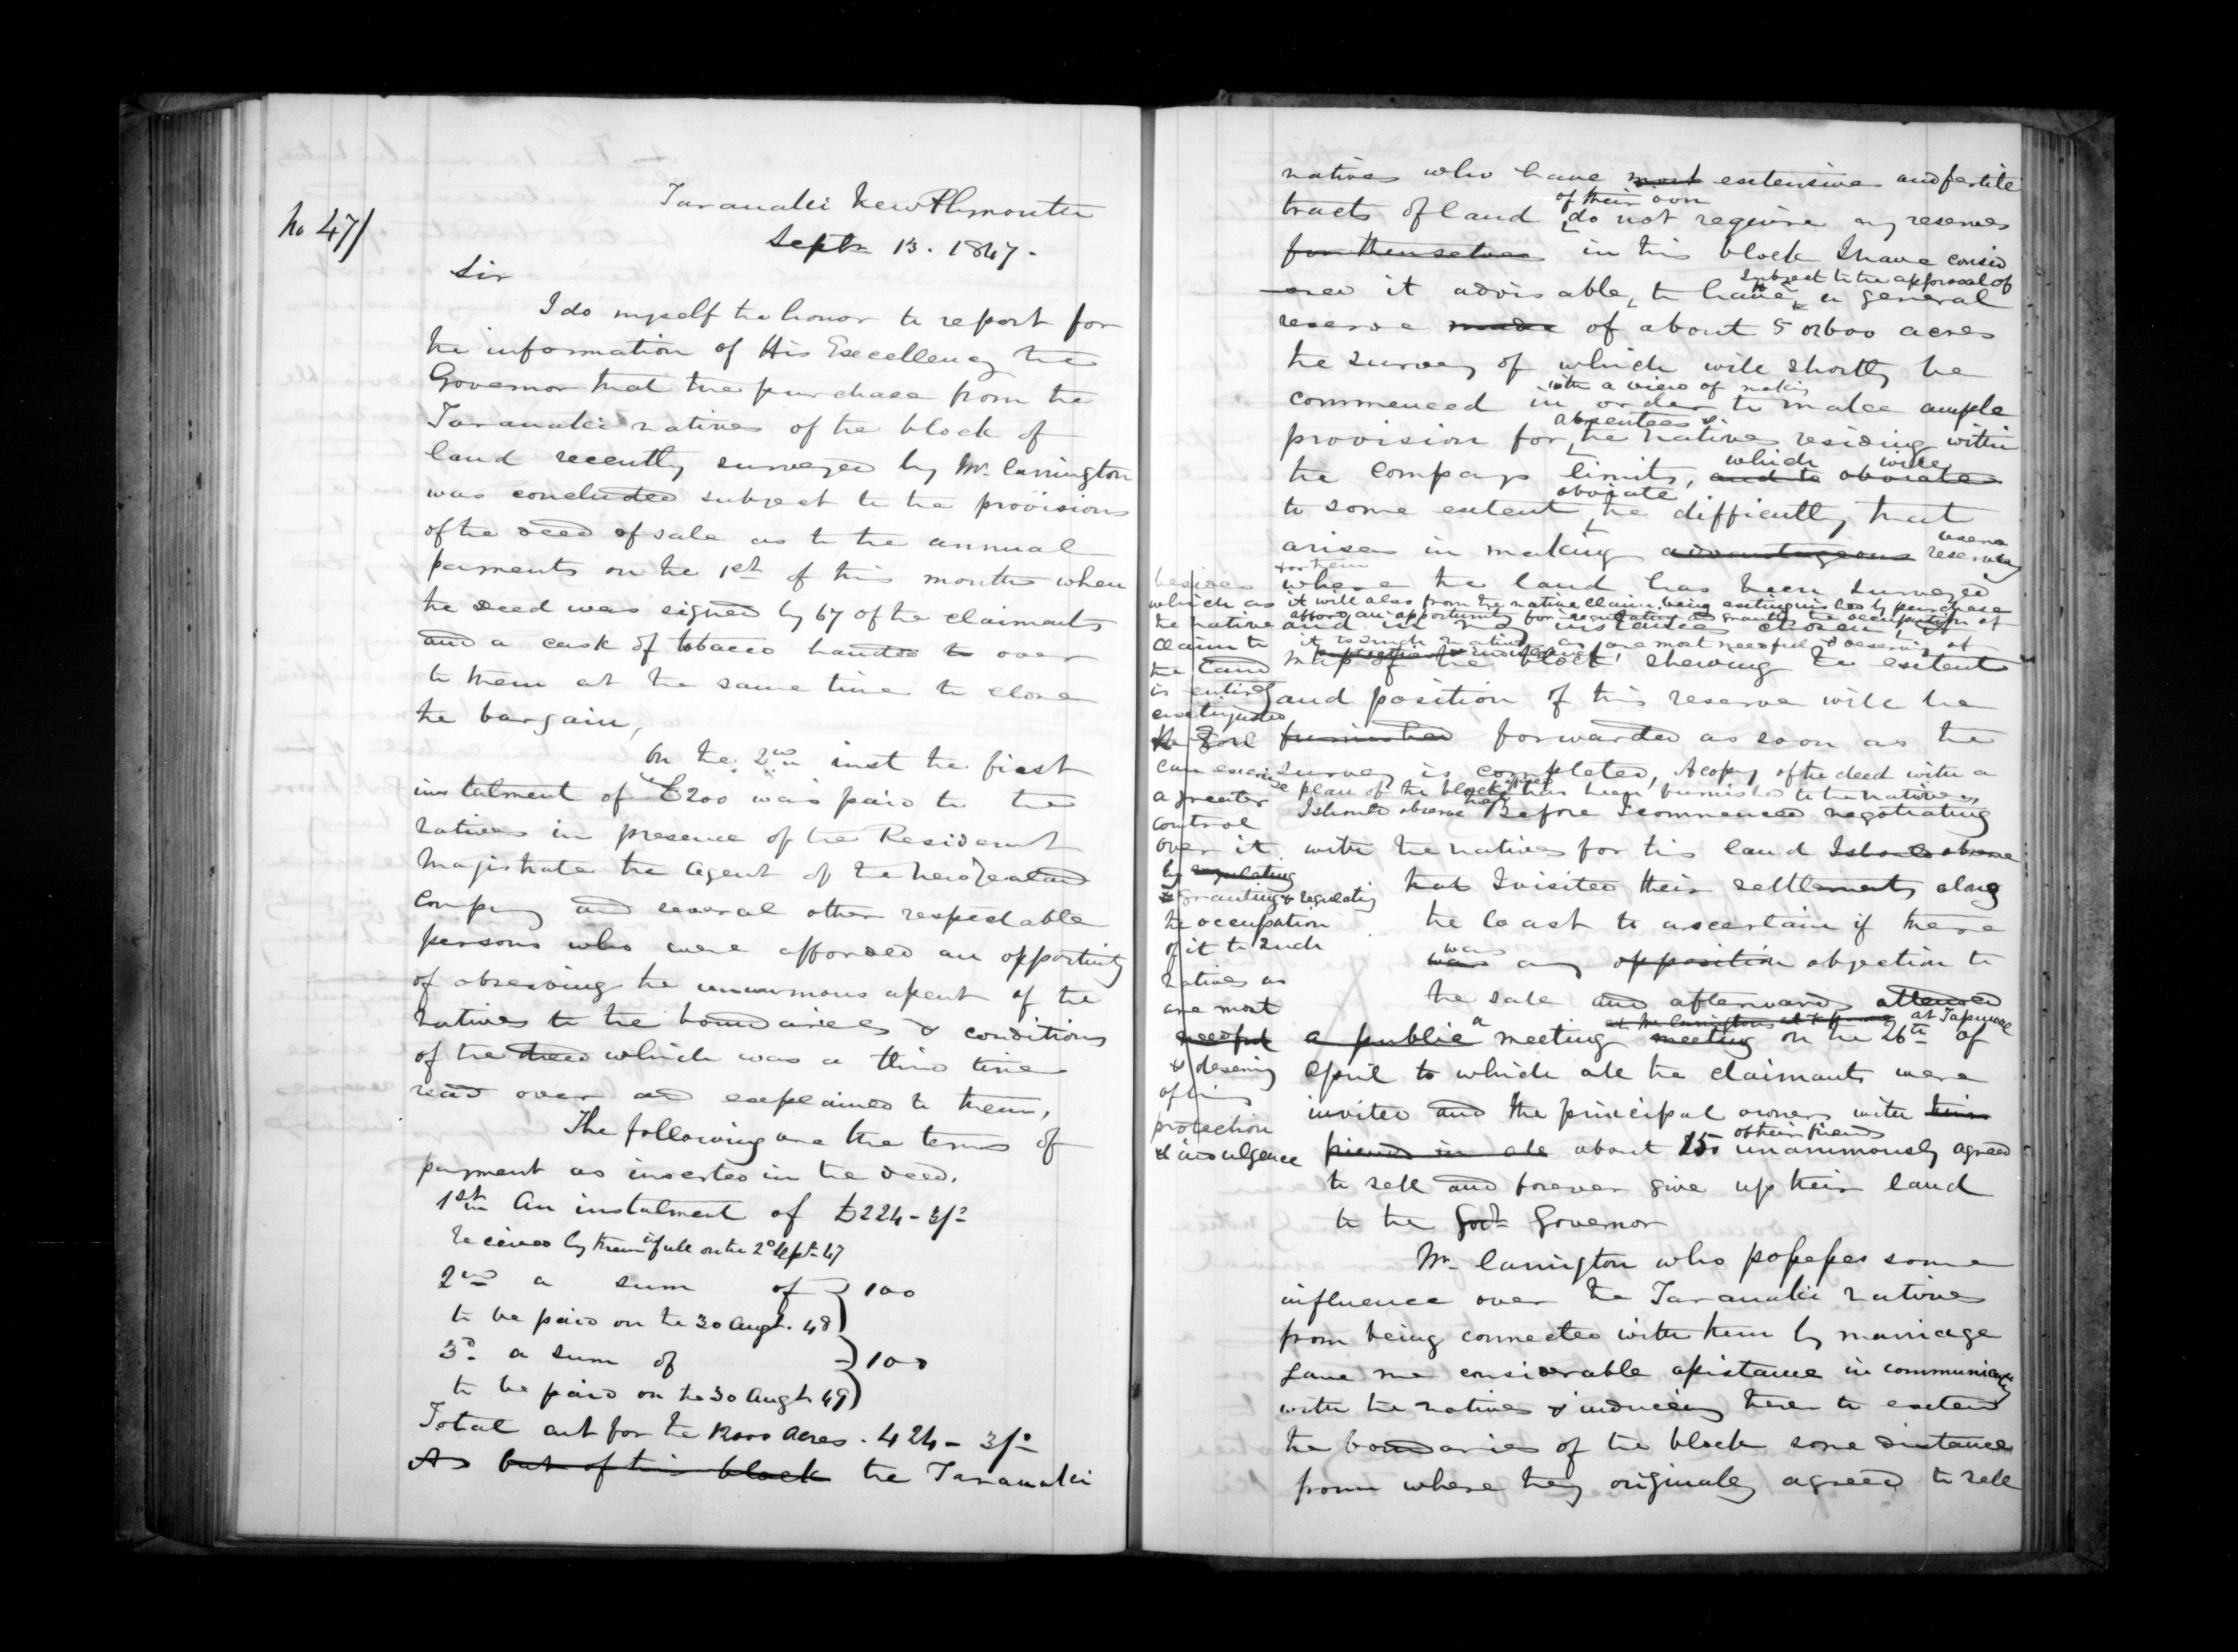 No 47/
Taranaki New Plymouth
Septr 13. 1847.
Sir
I do myself the honor to report for
the information of His Excellency the
Governor that the purchase from the
Taranaki natives of the block of
land recently surveyed by Mr. Carrington
was concluded subject to the provisions
of the deed of sale as to the annual
payments on the 1st of this month when
the deed was signed by 67 of the claimants
and a cask of tobacco handed to over
to them at the same time to close
the bargain,
On the 2nd inst the first
instalment of £200 was paid to the
natives in presence of the Resident
Magistrate the Agent of the New Zealand
Company and several other respectable
persons who were afforded an opportunity
of observing the unanimous assent of the
natives to the boundaries & conditions
of the deed which was a third time
read over and explained to them,
The following are the terms of
payment as inserted in the deed.
1st An instalment of £224-3/-
received by them in full on the 2d Sept 47
2nd a sum of } 100
to be paid on the 30 Augt. 48
3d a sum of } 100
to be paid on the 30 Augt 49
Total amt for the 12000 Acres . 424 - 3/-
As but of this block the Taranaki
natives who have most extensive and fertile
of their own
tracts of land do not require any reserves
for themselves in this block I have consid
subject to the approval of
ered it advisable, to have, a general
reserve made of about 5 or 600 acres
the survey of which will shortly be
with a view of making
commenced in order to make ample
absentees &
provision for the natives residing within
which will
the Companys limits, and to obviate
obviate
to some extent the difficulty that
arises in making advantageous reserves
for them
where the land has been surveyed
it will also from the native claim being extinguished by purchase
afford an opportunity for regulating & granting the occupation of
and in many instances chosen,
it to such natives as are most needful & deserving of
protection & indulgence,
map of the block, shewing the extent
and position of this reserve will be
furnished forwarded as soon as the
survey is completed, A copy of the deed with a
plan of the block has been furnished to the natives,
I should observe that Before I commenced negotiating
with the natives for this land I should observe
that I visited their settlements along
the coast to ascertain if there
was
was any opposition objection to
the sale and afterwards attended
at Mr Carringtons at Tapuwae at Tapuwae
a public a meeting meeting on the 26th of
April to which all the claimants were
invited and the principal owners with their
of their friends
friends in all about 150 unanimously agreed
to sell and forever give up their land
to the Govt. Governor
Mr. Carrington who possesses some
influence over the Taranaki natives
from being connected with them by marriage
gave me considerable assistance in communicating
with the natives & inducing them to extend
the boundaries of the block some distance
from where they originally agreed to sell
besides
which as
the native
claim to
the land
is entirely
extinguished
the Govt
can exercise
a greater
control
over it
by regulating
granting & regulating
the occupation
of it to such
natives as
are most
needful
& deserving
of
protection
& indulgence